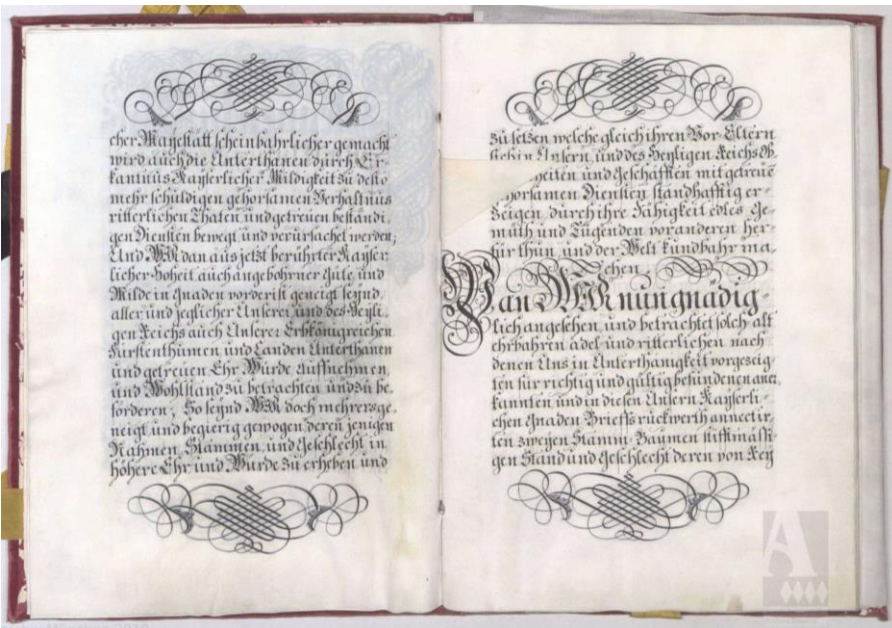 cher Mayestätt scheinbahrlicher gemacht
wird auch die Unterthanen durch Er-
kantnüs Kayserlicher Mildigkeit zu desto
mehr schuldigen gehorsamen Verhaltnüs
ritterlichen Thaten und getreuen beständi-
gen Diensten bewegt, und verursachet werden;
Und WIR dan aus jetzt berührter Kayser-
licher Hoheit auch angebohrner Güte, und
Milde in Gnaden vorderist geneigt seynd,
aller, und jeglicher Unserer, und des Heyli-
gen Reichs auch Unserer Erbkönigreichen
Fürstenthümen, und Landen Unterthanen
und getreuen Ehr Würde Auffnehmen,
und Wohlstand zu betrachten und zu be-
förderen; So seynd WIR doch mehrers ge-
neigt, und begierig gewogen, deren jenigen
Nahmen, Stammen, und Geschlecht in
höhere Ehr, und Würde zu erheben und
zu setzen welche gleich ihren Vor-Eltern
sich in Unsern, und des Heyligen Reichs Ob-
heiten und Geschäfften mit getreu
gehorsamen Diensten standhafftig er-
zeigen, durch ihre Fähigkeit edles Ge-
müth und Tugenden vor anderen her-
für thun, und der Welt kundbahr ma-
chen
Wan WIR nun gnädig-
lich angesehen, und betrachtet solch alt
ehrbahren adel und ritterlichen nach
denen Uns in Unterthänigkeit vorgezeig-
ten für richtig und gültig befundenen aner-
kannten, und in diesen Unsern Kayserli-
chen Gnaden Brieffs rückwerth annectir-
ten zweyen Stamm-Baumen stifftmässi-
gen Stand und Geschlecht deren von Key